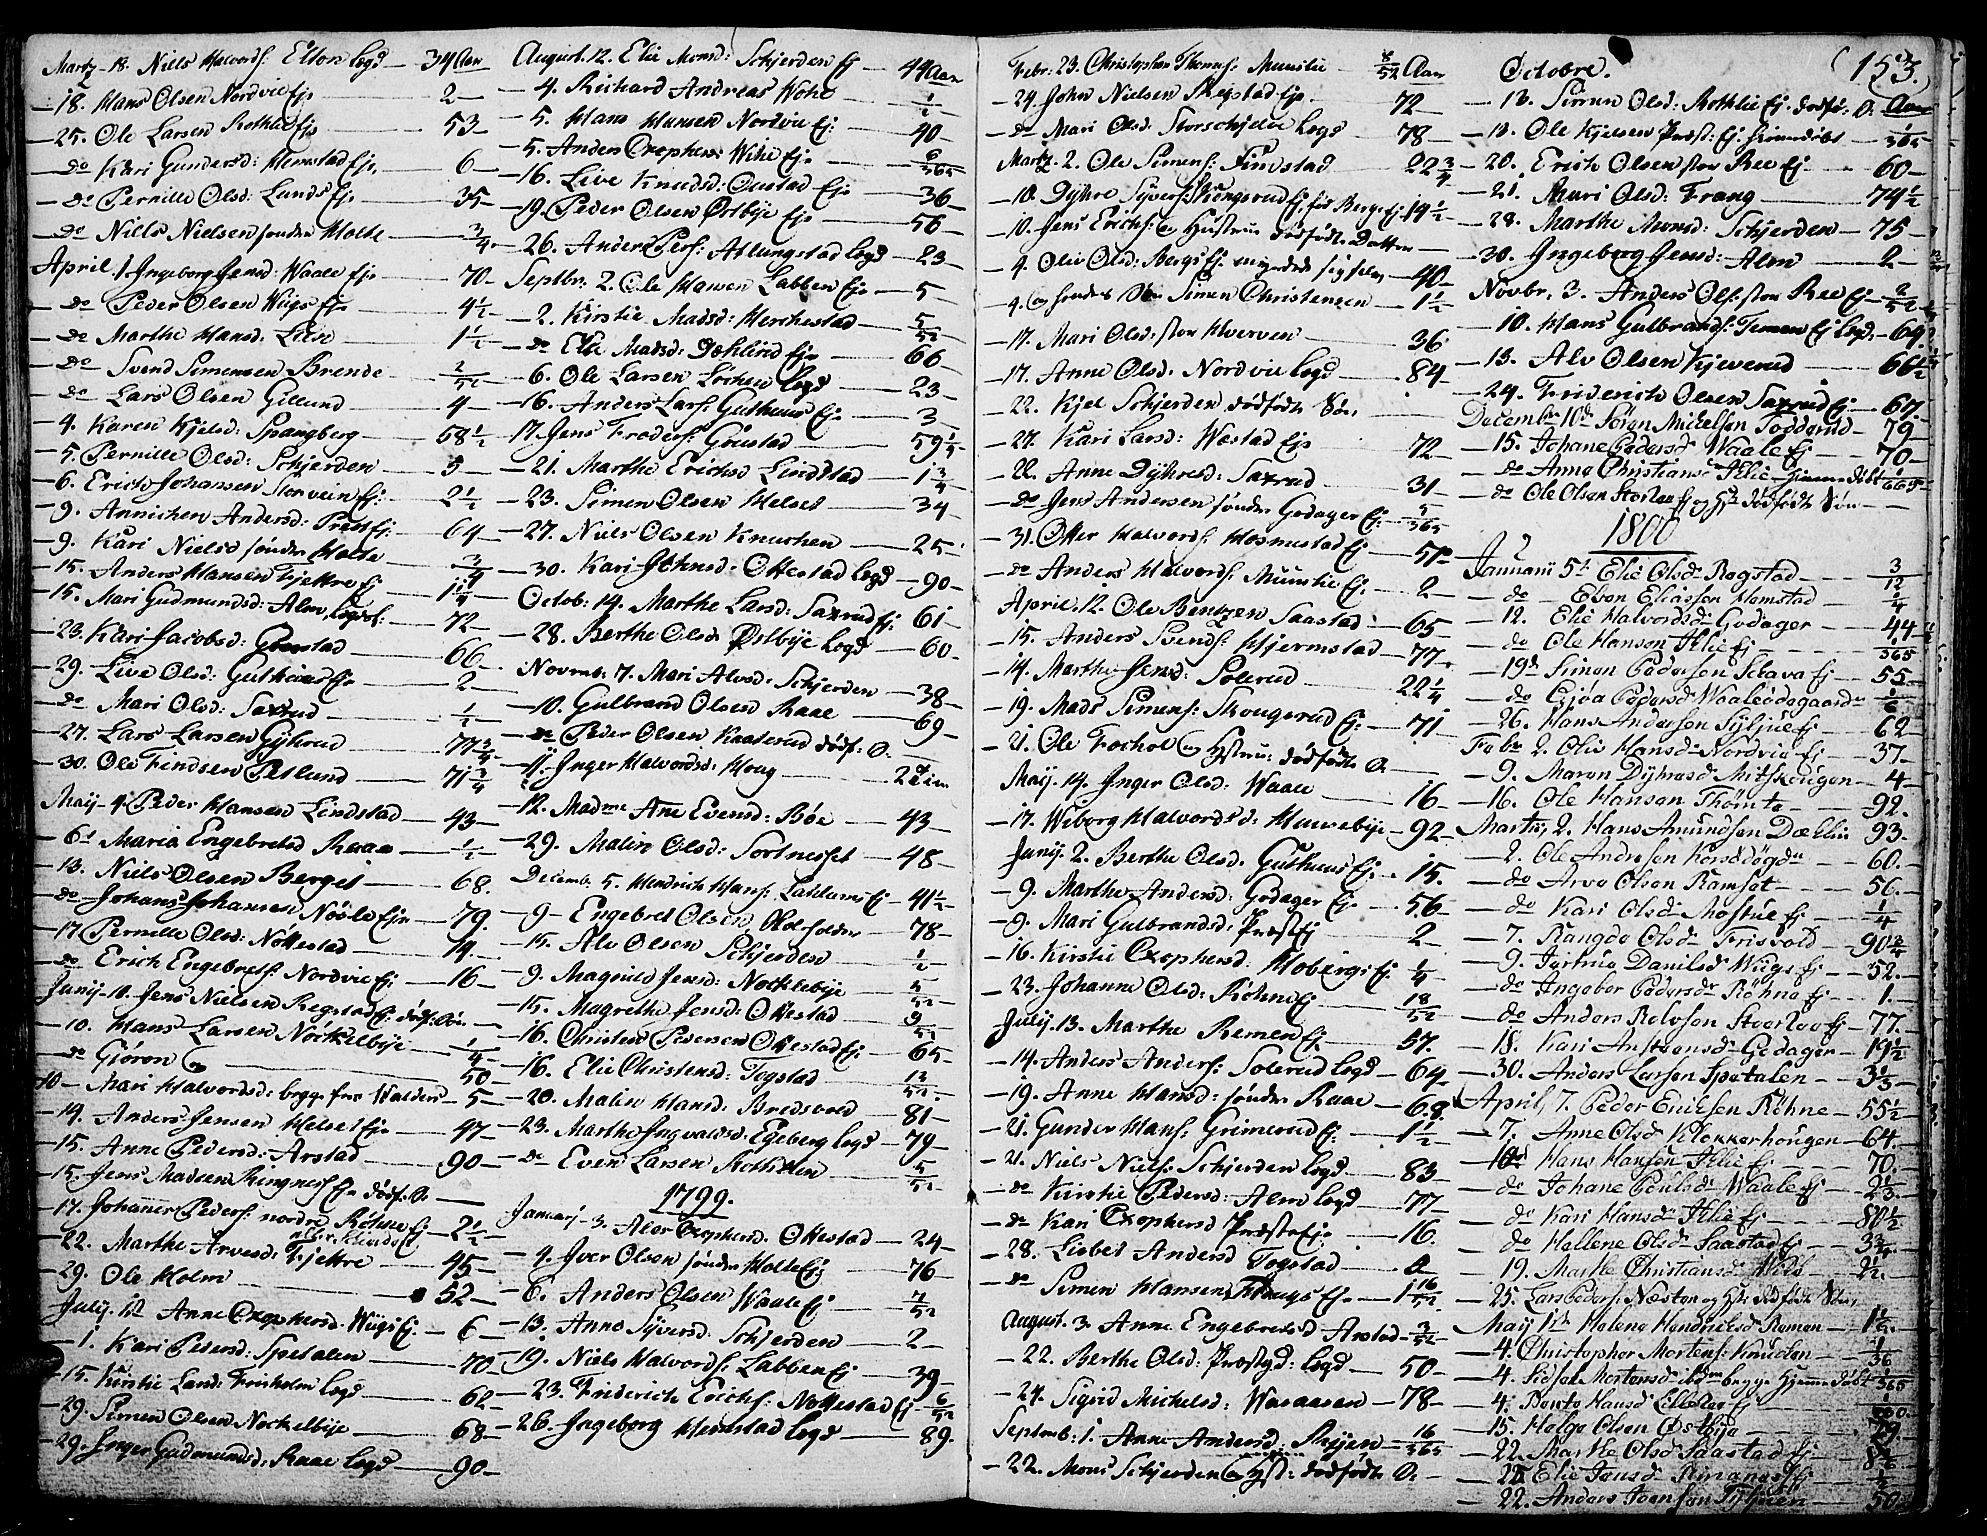 Martz - 18. Niels Halvords: Elton Logd — 34 Aar
— 18. Hans Olsen Nordvie Eje — 2 —
— 25. Ole Larsen Rothlie Eje — 53 —
— do Kari Gundersd: Hemstad Eje — 6 —
— do Pernille Olsd: Lunds Ej. — 35 —
— do Niels Nielsen søndre Holte — 3/4
April. 1. Ingeborg Jensd: Waale Eje — 70.
— do Peder Olsen Wiigs Eje — 4 1/2
— do Marthe Hansd: Lien — 1 1/2
— do Svend Simensen Brende — 2/52
— do Lars Olsen Gillund — 4 —
— 4. Karen Kjelsd: Spangberg — 68 1/2
— 5. Pernille Olsd: Schjerden — 5
— 6. Erich Johansen Storvein Ej: — 2 1/2
— 9. Annichen Andersd: Præst Ej: — 64 —
— 9. Kari Nielsd søndre Holte — 3/4
— 15. Anders Hansen Fjettre Ej — 1 1/4
— 15. Mari Gudmundsd: Alm — 72 —
— 23. Kari Jacobsd: — 66
— 29. Live Olsd: Guthuus Eje — 2 —
— do Mari Olsd: Saxrud — 1/2
— 27. Lars Larsen Gjhrud — 77 3/4
— 30. Ole Findsen Petlund — 71 3/4
Maij - 4. Peder Hansen Lindstad — 43 —
— 6. Maria Engebretsd Raaa — 1/2
— 13. Niels Olsen Berget — 68.
— do Johans Johansen Nøsle Eje — 79.
— 17 Pernille Olsd: Nøttestad — 14.
— do Erich Engebretss: Nordvie Ej: — 16 —
Junij - 10. Jens Nielsen Rogstad Ej: dødf: Søn —
— 10. Hans Larsen Nøckelbije — 1/4
— do Gjøron — 50 —
— 10 — Mari Halvordsd: begge fra Walders — 5 —
— 14. Anders Jensen Helset Eje — 47 —
— 15. Anne Pedersd: Arstad — 90 —
— 15. Jens Madsen Ringnes Ej dødf: D. —
— 17. Johanner Peders: nordre Røhne Ej — 2 1/2
— 22. Marthe Arvesd: Fjettre — 45 —
— 29. Ole Holm — 52 —
Julij. 1. Anne Chrophersd: Wiigs Ej. — 6 —
— 1. Kari Pedersd: Spetalen — 70 —
— 15. Kirstie Larsd: Frisholm Logd — 62 —
— 29. Simen Olsen Nøckelbije — 68 —
— 29. Inger Gudmundsd: Raae Logd — 90 —
August. 12. Elie Monsd: Schjerden Ej — 44 Aar
— 4. Richard Andreas Wohe — 1/2
— 5. Hans Hansen Nordvie Ej: — 40 —
— 5. Anders Chrophers: Wihe Eje — 6/365
— 16. Live Knudsd: Oustad Eje — 36 —
— 19. Peder Olsen Østbije Eje — 56 —
— 26. Anders Pers: Atlungstad Logd — 23 —
Septbr: 2. Ole Hansen Labben Eje — 5 —
— 2. Kirstie Madsd: Herchestad — 5/52
— do Elie Madsd: Dæhlind Eje — 66 —
— 6. Ole Larsen Løchen Logd — 23 —
— 16. Anders Lars: Guthuus Ej: — 3 —
— 17. Jens Froders: Goustad — 59 1/2
— 21. Marthe Erichsd Lindstad — 1 3/4
— 23. Simen Olsen Helset — 34 —
— 27. Niels Olsen Knuchen — 25
— 30. Kari Johnsd: Ottestad Logd — 90 —
Octob: 14. Marthe Larsd: Saxrud Ej: 61 —
— 28. Berthe Olsd: Østbije Logd — 60 —
Novemb: 7. Mari Alvsd: Schjerden — 38 —
— 10. Gulbrand Olsen Raae — 69 —
— do Peder Olsen Kaaterud dødf: D. —
— 11. Inger Halvordsd: Houg — 22
— 12. Madme Ane Evensd: Bøe — 43 —
— 29. Malin Olsd: Sortnesset — 48 —
Decemb: 5. Hendrich Hans: Lakkum Ej — 41 1/2
— 9 — Engebret Olsen, — 78 —
— 15. Alv Olsen Schjerden — 1/2
— 9. Magnild Jensd: Nøcklebije — 5/52
— 15. Magrethe Jensd: Ottestad — 9/52
— 16. Christen Pedersen Ottestad Ej. — 65 —
— 16. Elie Christensd: Togstad — 12/52
— 20. Malin Hansd: Bredsvold — 81 —
— 23. Marthe Ingvaldsd: Egeberg Logd — 79 —
— do Even Larsen Rothlien — 5/52
1799.
Januarij - 3. Aler Chrophersd: Ottestad — 24 —
— 4. Iver Olsen søndre Holte Ej — 76 —
— 6. Anders Olsen Waale Ej — 7/52
— 13. Anne Syversd: Schjerden — 2 —
— 19. Niels Halvords: Labben Ej — 39 —
— 23. Friderich Erichs: Nøttestad Ej — 6/52
— 26. Ingeborg Hemstad Logd — 89.
Febr: 23. Christopher Thoms: Munslie — 8/52 Aar
— 24. John Nielsen Regstad Eje — 72 —
— do Mari Olsd: Storschjelve Logd — 78 —
Martz. 2. Ole Simens: Findstad — 22 3/4
— 10. Dyhre Syvers: Kongsrud Ej for Bergs Ej 14 1/2
— 10. Jens Erichs: og Hustrue dødfødte Datter —
— 4. Oliv Olsd: Bergs Ej. myrdede sig selv — 40 —
— 4. og hendes Søn Simen Christensen — 1 1/2
— 17. Mari Olsd: stor Hverven — 36.
— 17. Anne Olsd: Nordvie Logd — 84 —
— 22. Kjel Schjerden dødfødte Søn
— 27. Kari Larsd: Wæstad Eje — 72 —
— 22. Anne Dyhresd: Saxrud — 31 —
— do Jens Andersen søndre Godager Ej. — /365
— 31. Otter Halvords: Hosmestad Ej — 51 —
— do Anders Halvords: Munslie Ej. — 2 —
April. 12. Ole Bentzen Saastad — 65 —
— 15. Anders Svends: Hjermstad — 77.
— 14. Marthe Jensd: Solerud — 22 1/4
— 19. Mads Simens: Skougerud Ej: — 71 —
— 21. Ole Fochol og Hustru: dødfødte D. —
Maij. 14. Inger Olsd: Waale — 16 —
— 17. Wiborg Halvordsd: Huusebije — 92 —
Junij. 2. Berthe Olsd: Guthuus Ej. — 15.
— 9. Marthe Andersd: Godager Ej — 56 —
— 9. Mari Gulbrandsd: Præst Ej — 2 —
— 16. Kirstie Chrophersd: Hobergs Ej — 1/4
— 23. Johanne Olsd: Røhne Ej — 18/52
Julij. 13. Marthe Remen Ej. — 57.
— 14. Anders Anders: Solerud Logd — 64 —
— 19. Anne Hansd: søndre Raae — 68.
— 21. Gunder Hans: Grimerud Ej: — 1 1/2
— 21. Niels Niels: Schjerden Logd — 83 —
— do Kirstie Pedersd: Alm Logd — 77 —
— do Kari Chrophersd Præste Eje — 16.
— 28. Lisbet Andersd Togstad — 0 —
— do Simen Hansen Houg Eje — 1 16/52
August. 3. Anne Engebretsd Arstad — 3/52
— 22. Berthe Olsd: Præstgd: Logd — 50 —
— 24. Sigrid Michelsd: Waraasen — 78 —
Septemb: 1. Anne Andersd: Rejjen — 16/365
— 22. Mons Schjerden og Hust: dødfødte D. —
(153.)
Octobre.
— 13. Simen Olsd: Rothlie Ej. dødfø: D: Aar
— 13. Ole Kjelsen Præst: Ej Hjemmedøbt — 1/365
— 20. Erich Olsen stor Ree Ej — 60 —
— 21. Mari Olsd: Frang — 74 1/2
— 28. Marthe Monsd: Schjerden — 75 —
— 30. Ingeborg Jensd: Alm — 2 —
Novbr. 3. Anders Ols: stor Ree Ej — 2/52
— 10. Hans Gulbrands: Temmen Ej Logd: — 64.
— 13. Alv Olsen Kjeverud — 66 1/2
— 24. Friderich Olsen Saxrud Ej — 67.
Decembr 10de Søren Mickelsen Toddérud — 79 —
— 15. Johane Pedersd Waale Ej — 70 —
— do Anne Christiansd Ilie hjemmedøbt /365
— do Ole Olsen Storlae Ej og H: dødfødte Søn —
1800
Januarii 5t Elie Olsdr Rogstad — 3/12
— do Even Eliassen Hemstad — 1/4
— 12. Elie Halvordsdr Godager — 44
— do Ole Hansen Ilie Ej — 1/365
— 19d Simen Pedersen Sclava Ej — 55 —
— do Gjøa Pedersdr Waaleødegaard — 1/6
— 26. Hans Andersen Sylljue Ej — 62
Febr 2. Olie Hansdr Nordvie Ej — 37 —
— 9. Maren Dyhresd Mitskougen — 4 —
— 16. Ole Hansen Thømte — 92.
Martij, 2. Hans Amundsen Dæhlin — 93.
— 2. Ole Andersen Korsødegdn — 60. —
— do Arve Olsen Ramset — 56. —
— do Kari Olsdr Mostue Ej — 1/4
— 7. Rangde Olsdr Frisvold — 90 3/4
— 9. Jertrue Danilsdr Wiigs Ej — 52. —
— do Ingebor Pedersdr Røhne Ej — 1. —
— do Anders Bolvsen Storlae Ej — 77. —
— 18. Kari Anstensdr Godager — 19 1/2
— 30. Anders Larsen Spetalen — 3 1/3 —
April, 7. Peder Eriksen Røhne — 55 1/2
— 7. Anne Olsd Klokkerhougen — 64. —
— 10d Hans Hansen Ilie Ej — 70. —
— do Johane Poulsdr Waale Ej — 2 1/3 —
— do Kari Hansdr Ilie Ej — 80 1/2
— do Hellene Olsdr Saastad Ej — 3 3/4 —
— 19. Marthe Christiansdr — 2 1/2 —
— 25. Lars Peders: Næsten og H: dødfødte Søn,
Maij 1ste Helena Hendriksd Remen — 1 1/2. —
— 4. Christopher Mortens: Knutten — 1/36
— 4. Sidsele Mortensd: ibdm begge hjemmedøbt 1/365
— 4. Bente Hansd Ellelae Ej
— 15. Helge Olsen Østbije
— 22. Marthe Olsdr Saastad Ej
— 22. Elie Jensdr Ringnæs Ej
— 22. Anders Joensen — 50